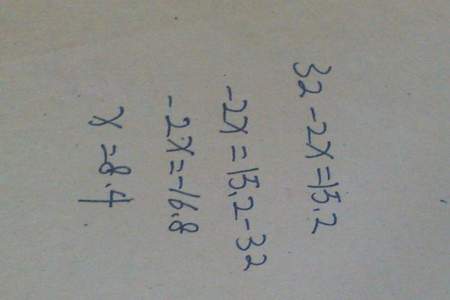 32-2x=15.2
-2x=15.2-32
-2x=-16.8
x=8.4